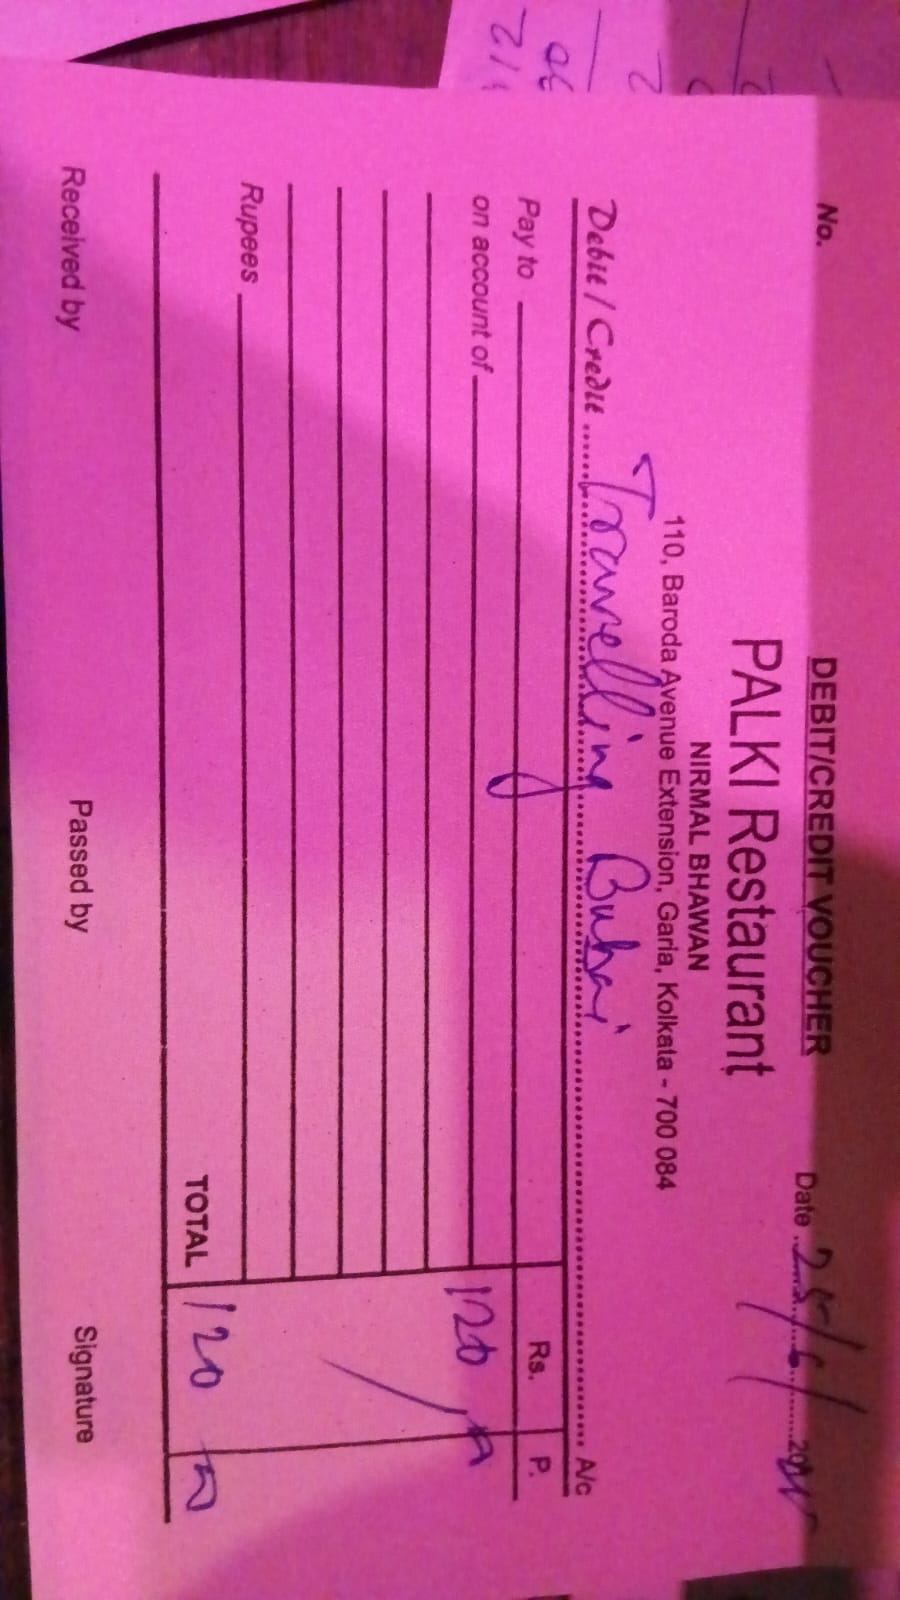 DEBIT/CREDIT VOUCHER
No. Date 25/6/
PALKI Restaurant
NIRMAL BHAWAN
110, Baroda Avenue Extension, Garia, Kolkata - 700 084
Debit / Credit Travelling Bubai A/c
Pay to Rs. P.
on account of 120
Rupees
TOTAL 120
Received by Passed by Signature